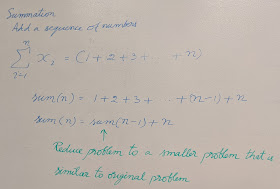 Summation
Add a sequence of numbers
n
∑ xᵢ = (1+2+3+ .. +n)
i=1
sum(n) = 1+2+3+ .. +(n-1)+n
sum(n) = sum(n-1)+n
Reduce problem to a smaller problem that is
similar to original problem